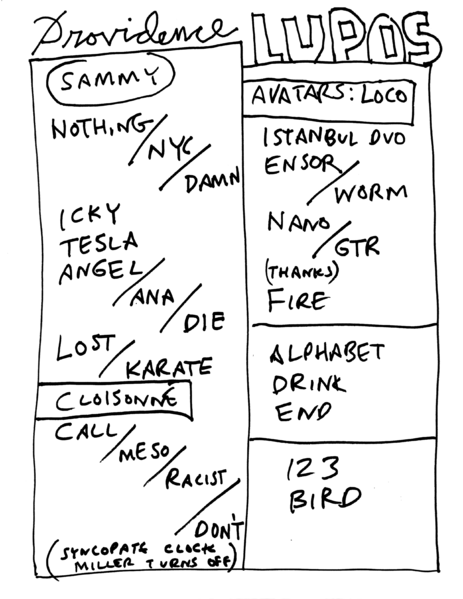 Providence
SAMMY
NOTHING/
NYC/
DAMN
ICKY
TESLA
ANGEL/
ANA/
DIE
LOST/
KARATE
CLOISONNÉ
CALL/
MESO/
RACIST/
DON'T
(SYNCOPATE CLOCK
MILLER TURNS OFF)
LUPOS
AVATARS: LOCO
ISTANBUL DUO
ENSOR/
WORM
NANO/
GTR
(THANKS)
FIRE
ALPHABET
DRINK
END
123
BIRD